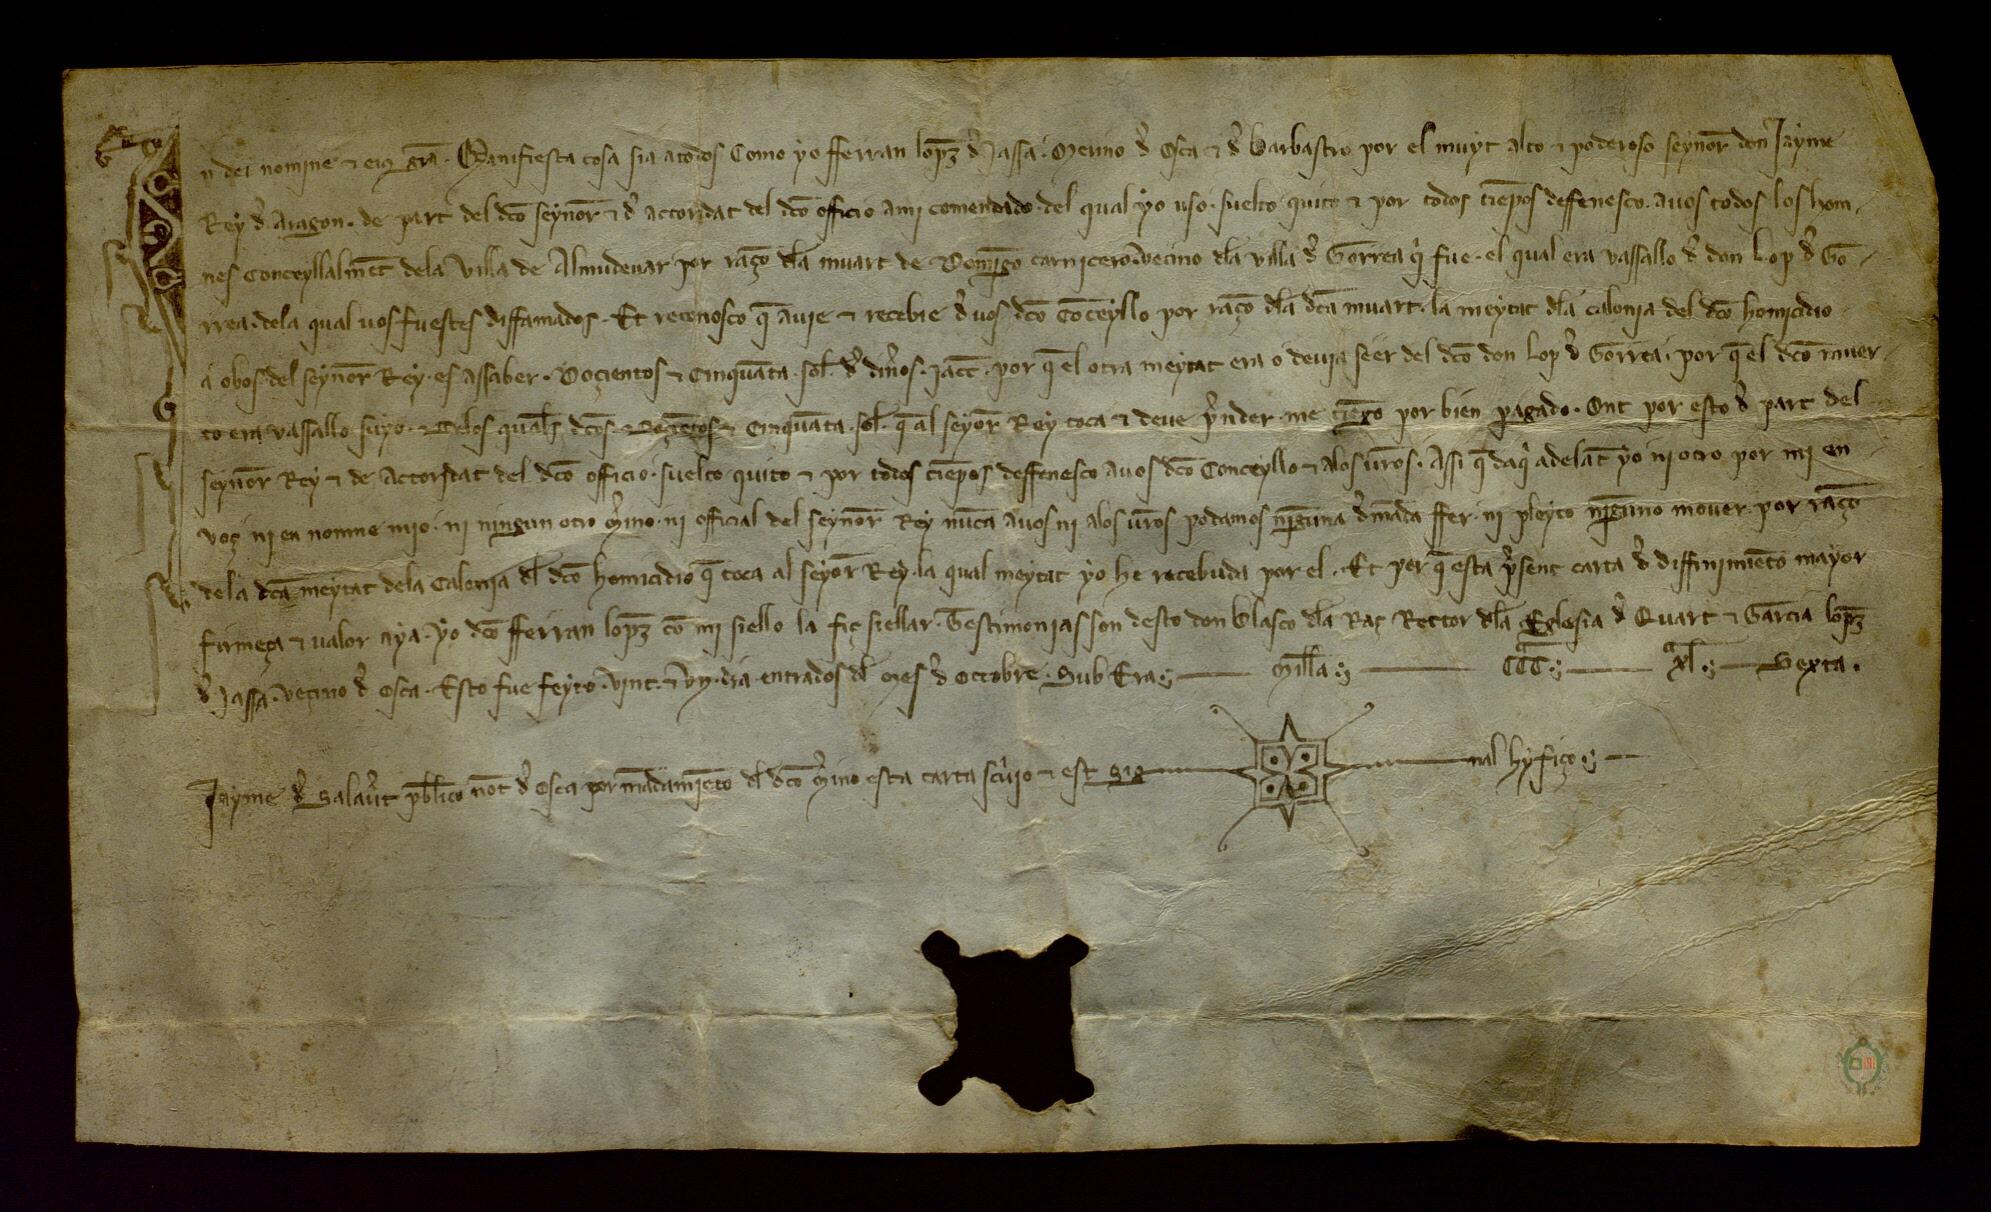 In dei nomine ⁊ ei9 grã. Manifiesta cosa sia atodos Como yo fferran lopz d̉ Jassa. Merino d̉ Osca ⁊ d̉ Barbastro por el muyt alto ⁊ poderoso seynor̃ don Jayme
Rey d̉ Aragon. de part del dc̃o seynor̃ ⁊ d̉ actoridat del dc̃o officio ami comendado. del qual yo uso. suelto quito ⁊ por todos tiẽpos deffenesco. auos todos los hom
nes Conceyllalmẽt dela Villa de Almudeuar por raçõ dla muart de Domĩgo carnicero. vecino dla villa d̉ Gorrea q̉ fue. el qual era vassallo d̉ don Lop d̉ Go
rrea. dela qual uos fuestes diffamados. Et reconosco q̃ auie ⁊ recebie d̉ uos dc̃o Cõceyllo por raçõ dla dc̃a muart. la meytat dla calonia del dc̃o homicidio
a obos del seynor Rey. es assaber. Doçientos ⁊ Cinquãta sol. d̉ din̉os. Jacc̃. por q̃ el otra meytat era o deuia seer del dc̃o don Lop d̉ Gorrea. por q̃ el dc̃o muer
to era vassallo suyo. Delos quals dc̃os Doçiẽtos ⁊ Cinquãta sol. q̃ al seyor̃ Rey toca ⁊ deue p̉nder. me tiẽgo por bien pagado. Ont por esto d̉ part del
seynor̃ Rey ⁊ de Actoridat del dc̃o officio. suelto quito ⁊ por todos tiẽpos deffenesco auos dc̃o Conceyllo ⁊ alos ur̃os. Assi q̃ daq̉ adelãt yo ni otro por mi en
voç ni en nomne mio. ni ningun otro m̉ino. ni official del seynor̃ Rey nũca auos ni alos ur̃os podamos nĩguna d̉mãda ffer. ni pleyto nĩguno mouer por raçõ
dela dc̃a meytat dela Calonia dl dc̃o homicidio q̃ toca al seyor̃ Rey. la qual meytat yo he recebuda por el. Et por q̃ esta p̉sent carta d̉ diffinimiẽto mayor
firmeça ⁊ ualor aya. yo dc̃o fferran lopz cõ mi siello la fiç siellar. Testimonias son desto don Blasco dla Raç Rector dla Eglesia d̉ Quart ⁊ Garcia lopz
d̉ Jassa. veçino d̉ Osca. Esto fue feyto. Vint. ⁊ vn. dia entrados dl Mes d̉ Octobre. Sub Era Mill̃a CCCª xlª Sexta.
Jayme d̉ Salaủt pb̃lico not̃ d̉ Osca por mãdamiẽto dl dc̃o m̉ino esta carta scriuio ⁊ est sig nal hy fiço